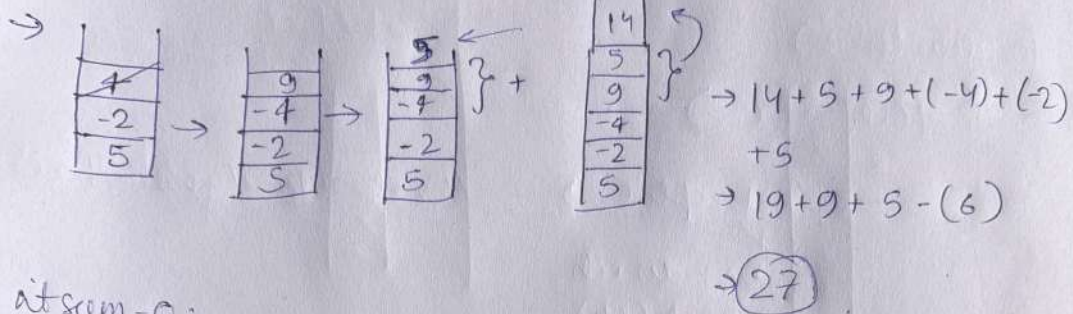 →
4
-2
5
→
9
-4
-2
5
→
5
9
-4
-2
5
} +
14
5
9
-4
-2
5
}
→ 14 + 5 + 9 + (-4) + (-2)
+5
→ 19 + 9 + 5 - (6)
→ 27
int sum = 0;